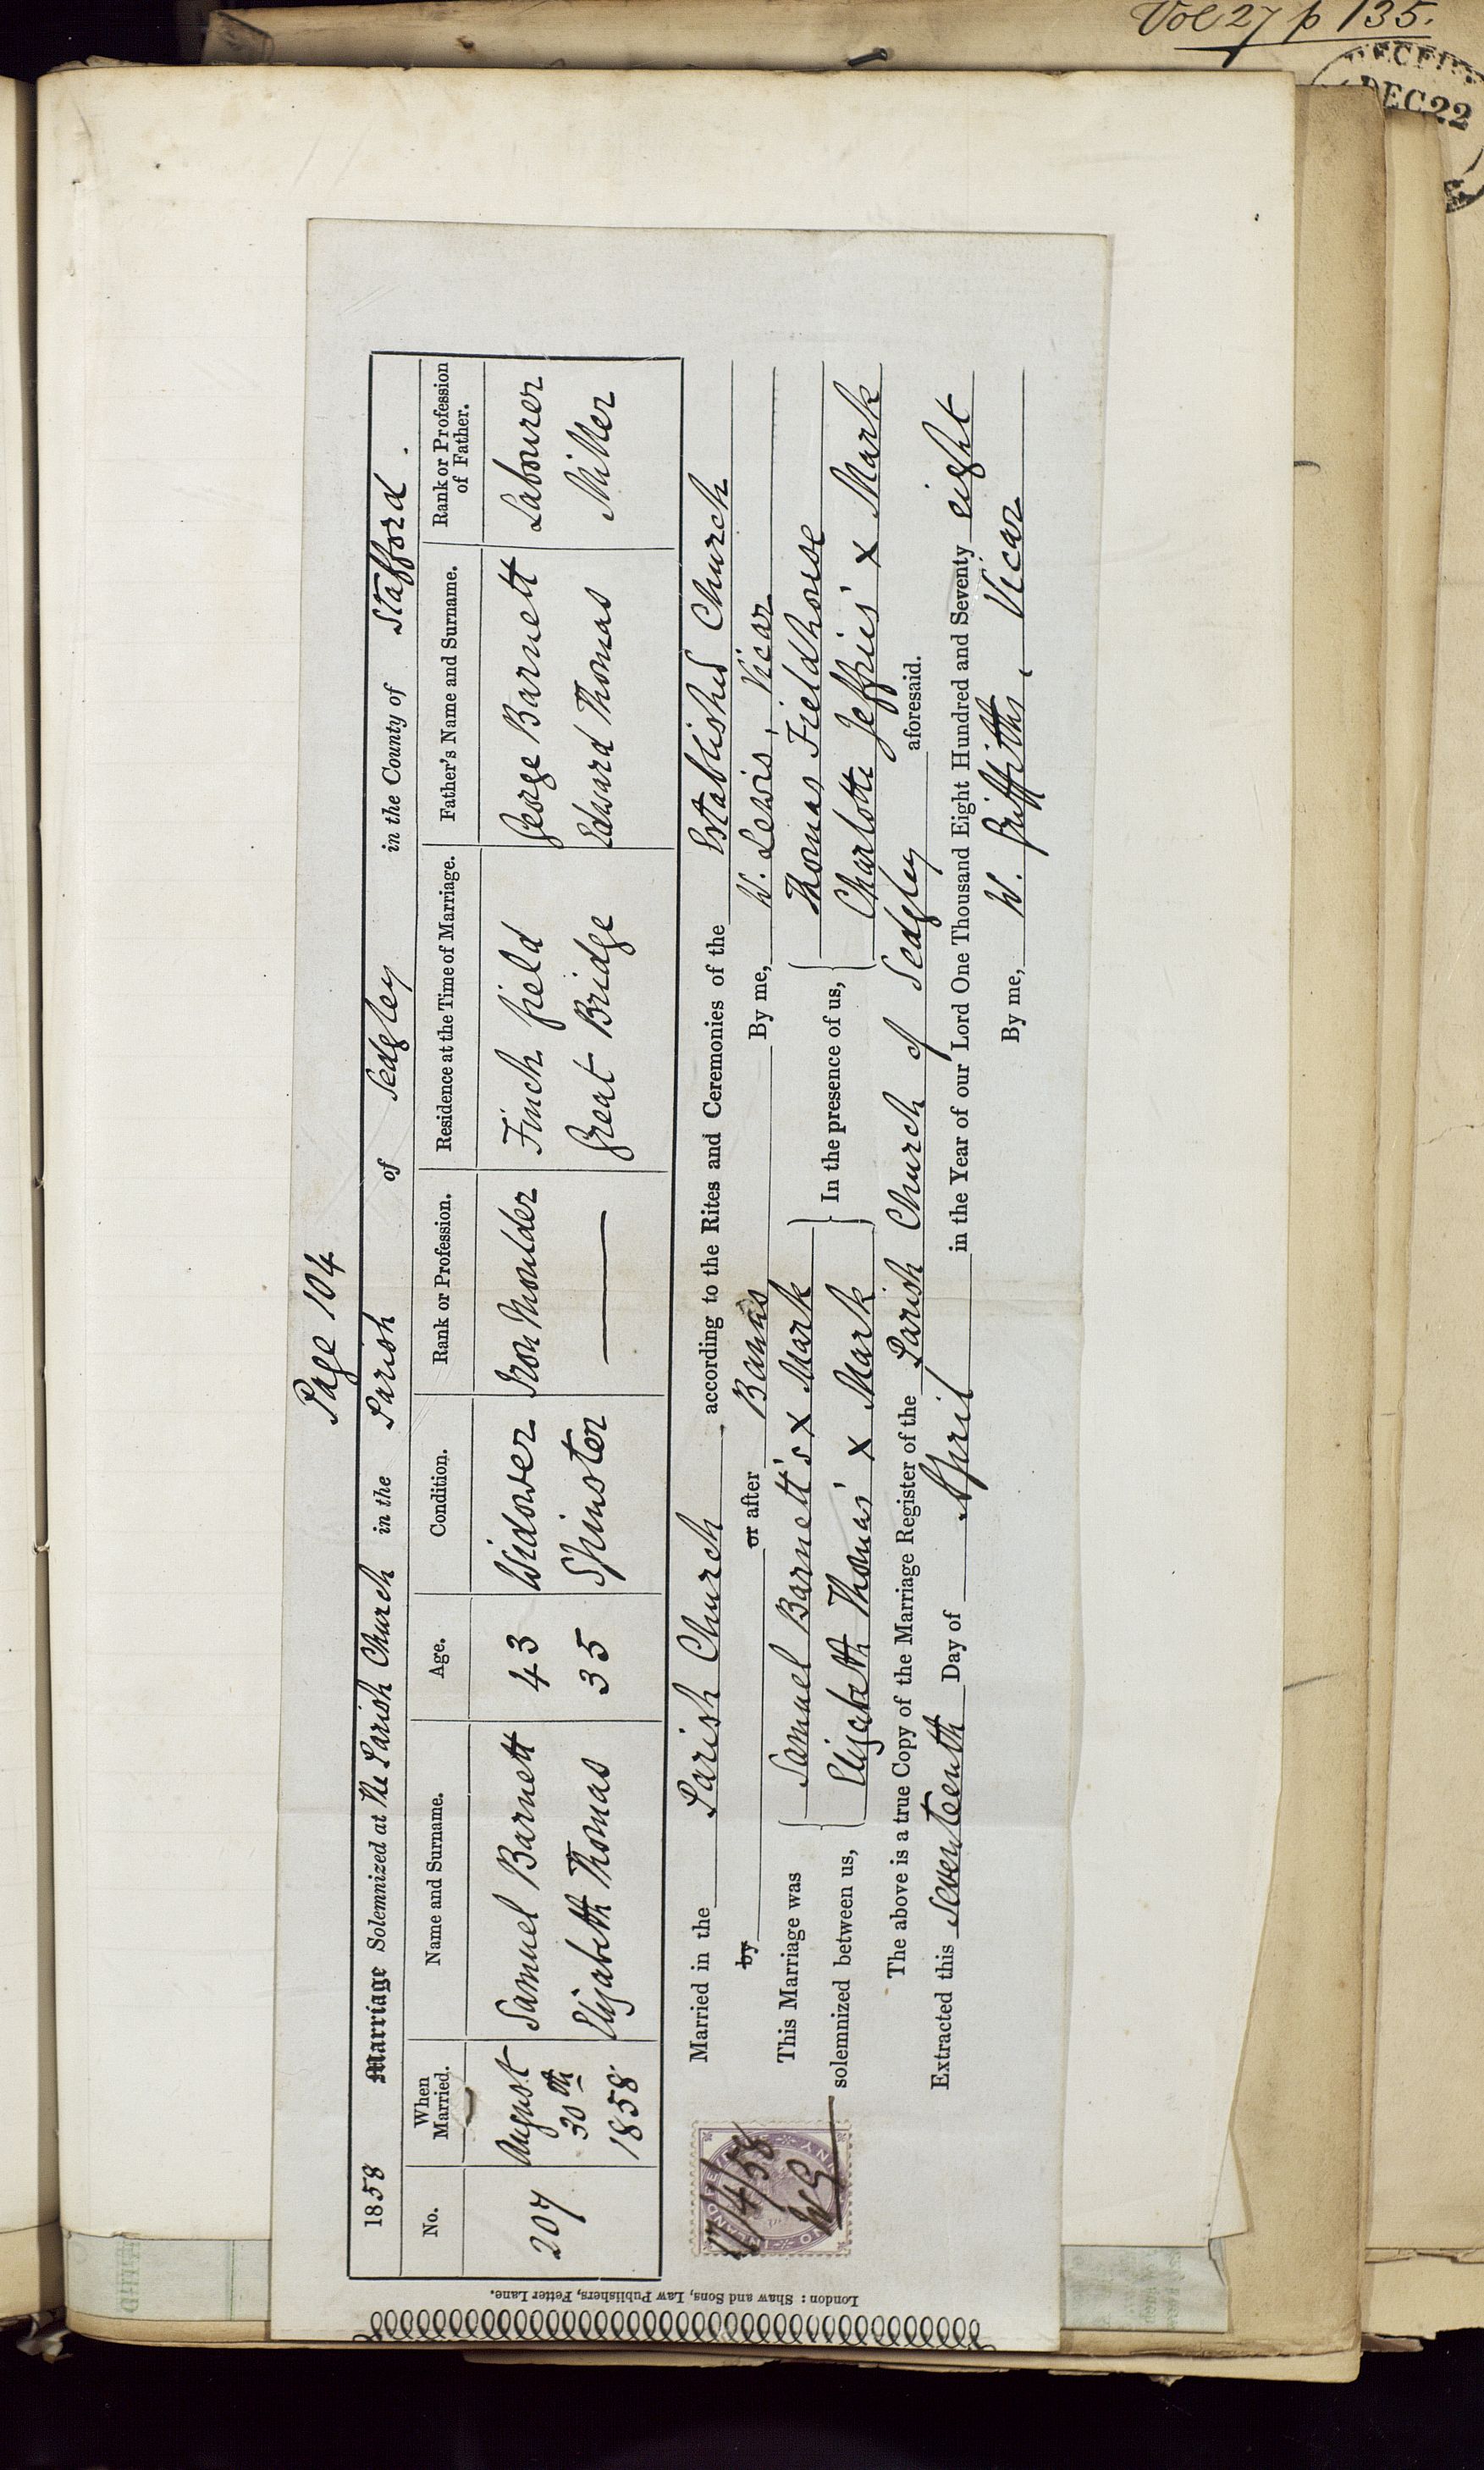 Vol 27 p 135.
DEC 22
Page 104
1858 Marriage Solemnized at The Parish Church in the Parish of Sedgley in the County of Stafford.
No. When Married. Name and Surname. Age. Condition. Rank or Profession. Residence at the Time of Marriage. Father's Name and Surname. Rank or Profession of Father.
207 August 30th 1858 Samuel Barnett 43 Widower Iron Moulder Finchfield George Barnett Labourer
Elizabeth Thomas 35 Spinster — Great Bridge Edward Thomas Miller
Married in the Parish Church according to the Rites and Ceremonies of the Established Church
by or after Banns By me, W. Lewis, Vicar
This Marriage was solemnized between us, Samuel Barnett's x Mark In the presence of us, Thomas Fieldhouse
Elizabeth Thomas' x Mark Charlotte Jeffries' x Mark
The above is a true Copy of the Marriage Register of the Parish Church of Sedgley aforesaid.
Extracted this seventeenth Day of April in the Year of our Lord One Thousand Eight Hundred and Seventy eight
By me, W. Griffiths, Vicar
17/4/58
WG
London: Shaw and Sons, Law Publishers, Fetter Lane.